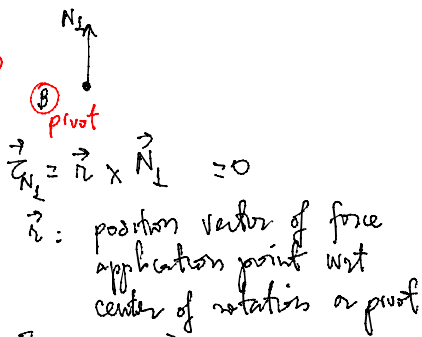 N⊥
B
pivot
τ⃗_N⊥ = r⃗ × N⃗⊥ = 0
r⃗ : position vector of force
application point wrt
center of rotation or pivot